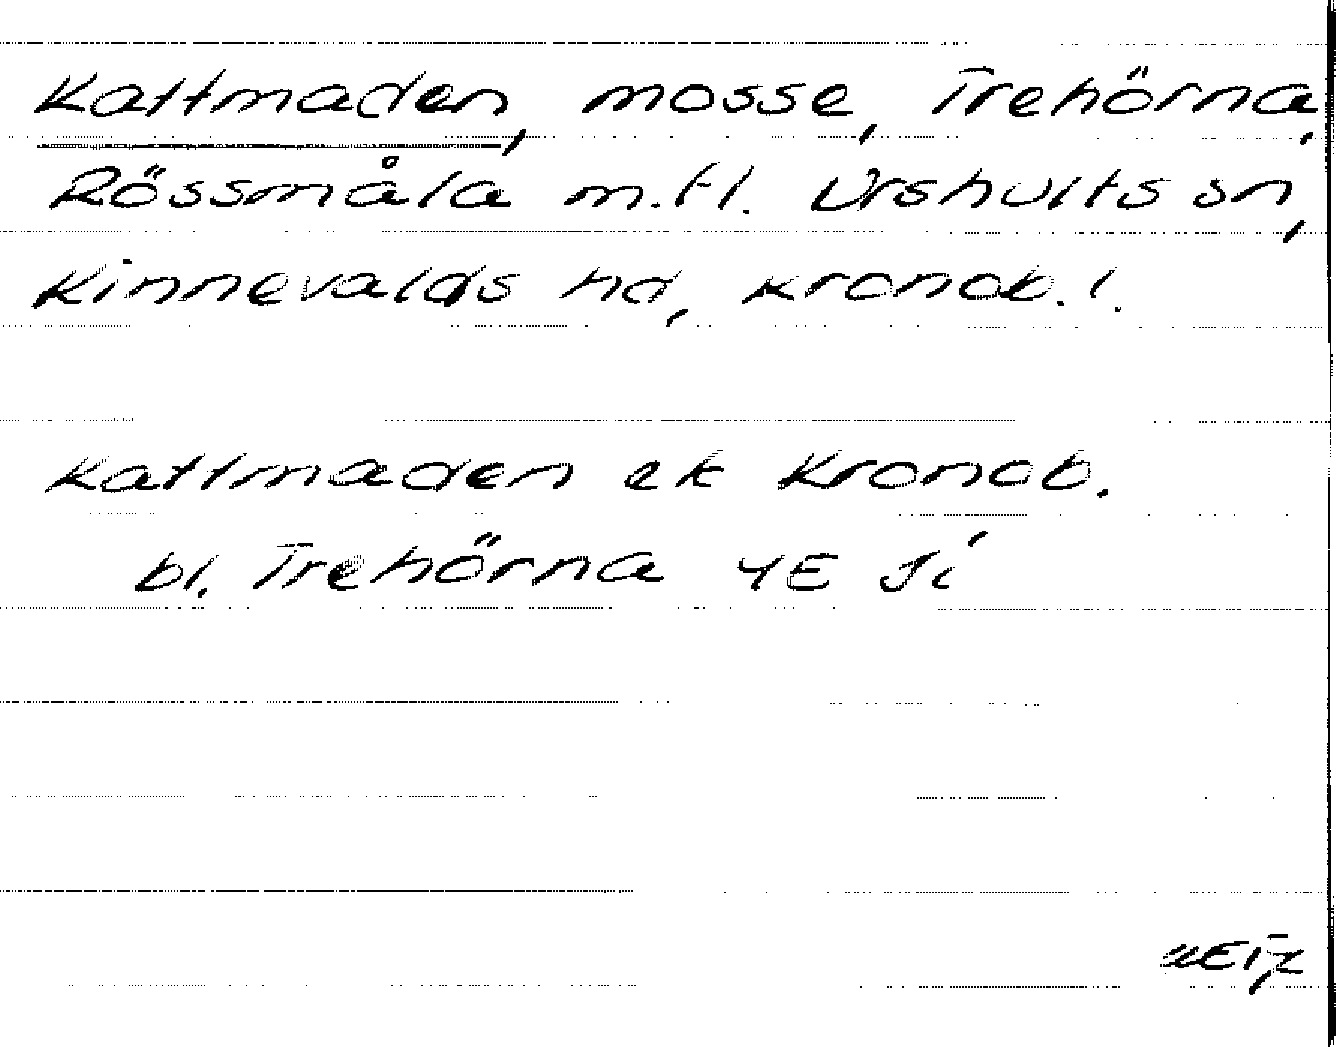 Kattmaden, mosse, Trehörna,
Rössmåla m.fl. Urshults sn,
Kinnevalds hd, Kronob. l.
Kattmaden ek Kronob.
bl. Trehörna 4E Ji